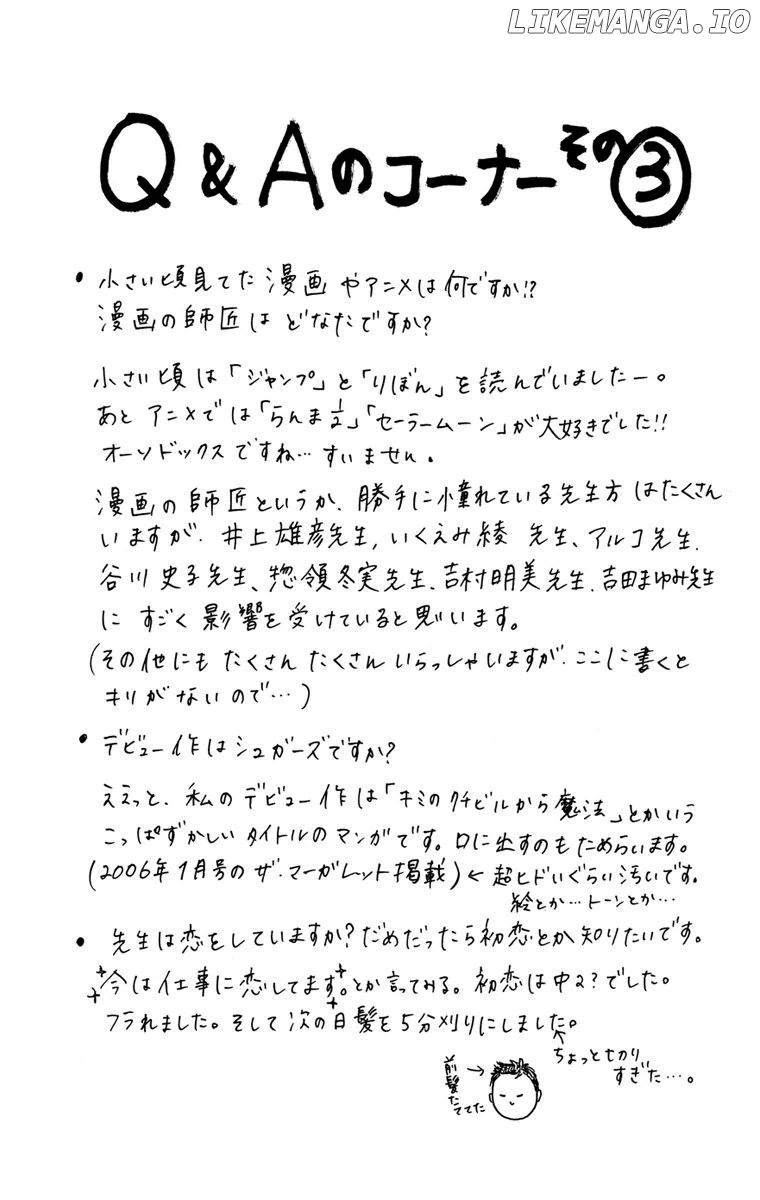 LIKEMANGA.IO
Q&Aのコーナーその③
• 小さい頃見てた漫画やアニメは何ですか!?
漫画の師匠はどなたですか?
小さい頃は「ジャンプ」と「りぼん」を読んでいましたー。
あとアニメでは「らんま1/2」「セーラームーン」が大好きでした!!
オーソドックスですね…すいません。
漫画の師匠というか、勝手に憧れている先生方はたくさん
いますが、井上雄彦先生、いくえみ綾先生、アルコ先生、
谷川史子先生、惣領冬実先生、吉村明美先生、吉田まゆみ先生
にすごく影響を受けていると思います。
(その他にもたくさんたくさんいらっしゃいますが、ここに書くと
キリがないので…)
• デビュー作はシュガーズですか?
ええっと、私のデビュー作は「キミのクチビルから魔法」とかいう
こっぱずかしいタイトルのマンガです。口に出すのもためらいます。
(2006年1月号のザ・マーガレット掲載)← 超ヒドいぐらい汚いです。
絵とか…トーンとか…
• 先生は恋をしていますか?だめだったら初恋とか知りたいです。
今は仕事に恋してます。とか言ってみる。初恋は中2?でした。
フラれました。そして次の日髪を5分刈りにしました。
←ちょっとやりすぎた…。
前髪たててた→